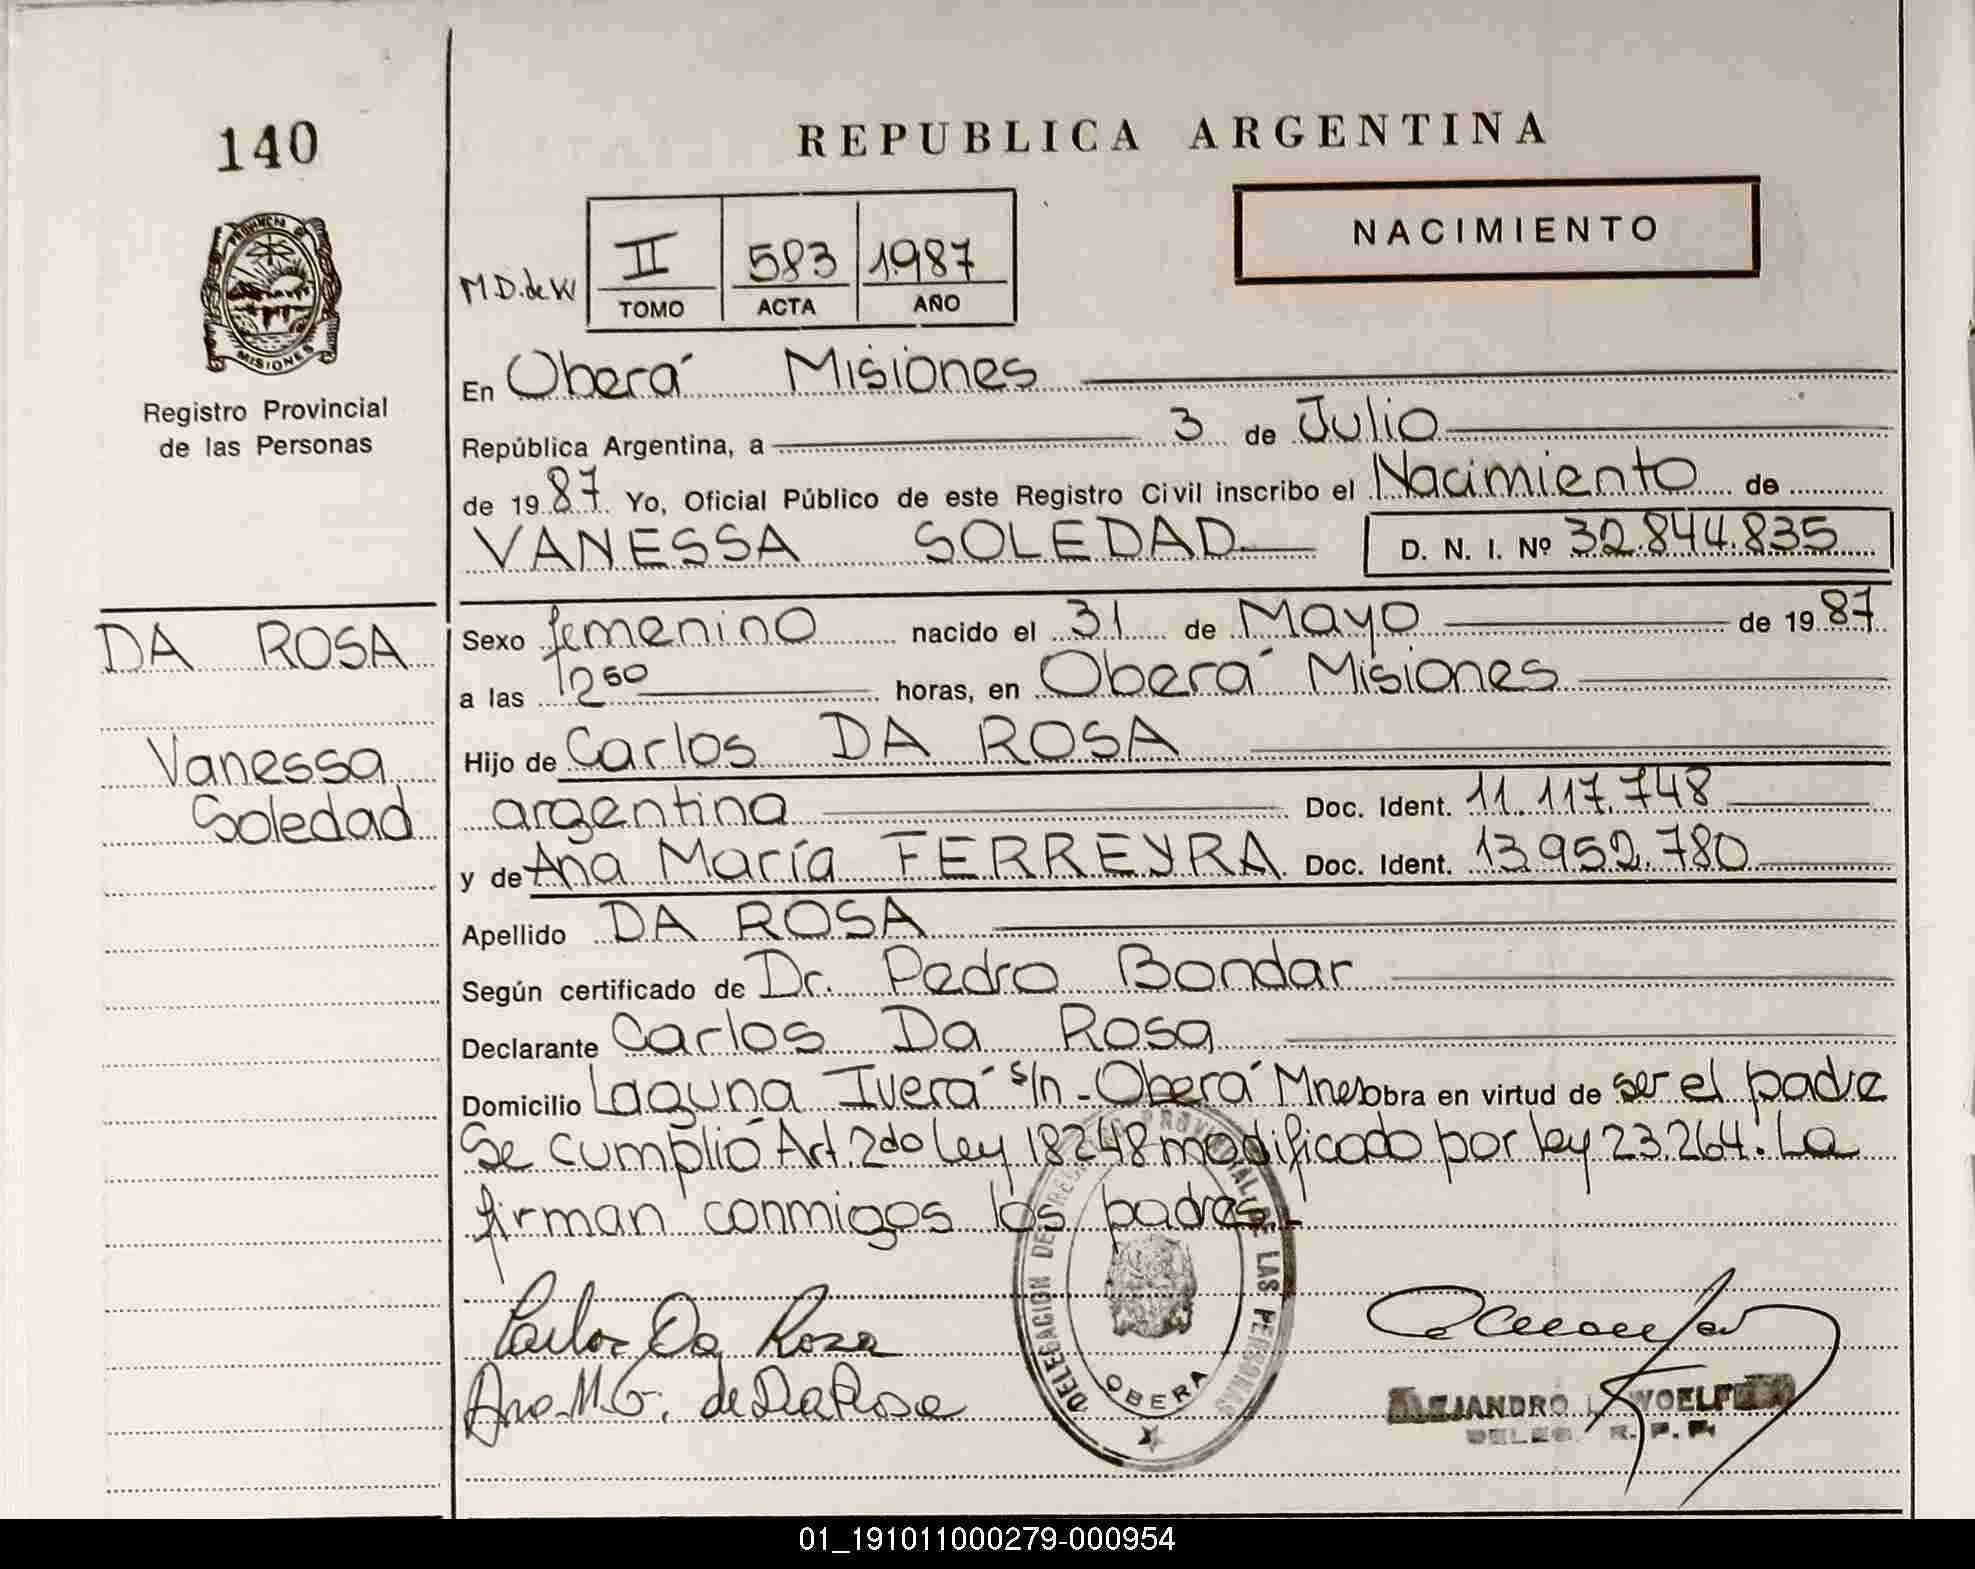 140
REPUBLICA ARGENTINA
NACIMIENTO
M.D.de W
II 583 1987
TOMO ACTA AÑO
PROVINCIA DE
MISIONES
Registro Provincial
de las Personas
En Oberá Misiones
República Argentina, a 3 de Julio
de 19 87 Yo, Oficial Público de este Registro Civil inscribo el Nacimiento de
VANESSA SOLEDAD D. N. I. Nº 32.844.835
DA ROSA
Vanessa
Soledad
Sexo femenino nacido el 31 de Mayo de 19 87
a las 12 horas, en Oberá Misiones
Hijo de Carlos DA ROSA
argentina Doc. Ident. 11.117.748
y de Ana María FERREYRA Doc. Ident. 13.952.780
Apellido DA ROSA
Según certificado de Dr. Pedro Bondar
Declarante Carlos Da Rosa
Domicilio Laguna Iverá s/n - Oberá Mnes obra en virtud de ser el padre
Se cumplió Art. 2do ley 18248 modificado por ley 23.264. La
firman conmigos los padres.-
Carlos Da Rosa
Ana M. G. de Da Rosa
DELEGACION DEL REG PROVINCIAL DE LAS PERSONAS
OBERA
ALEJANDRO
DELEG. R. P. P.
01_191011000279-000954